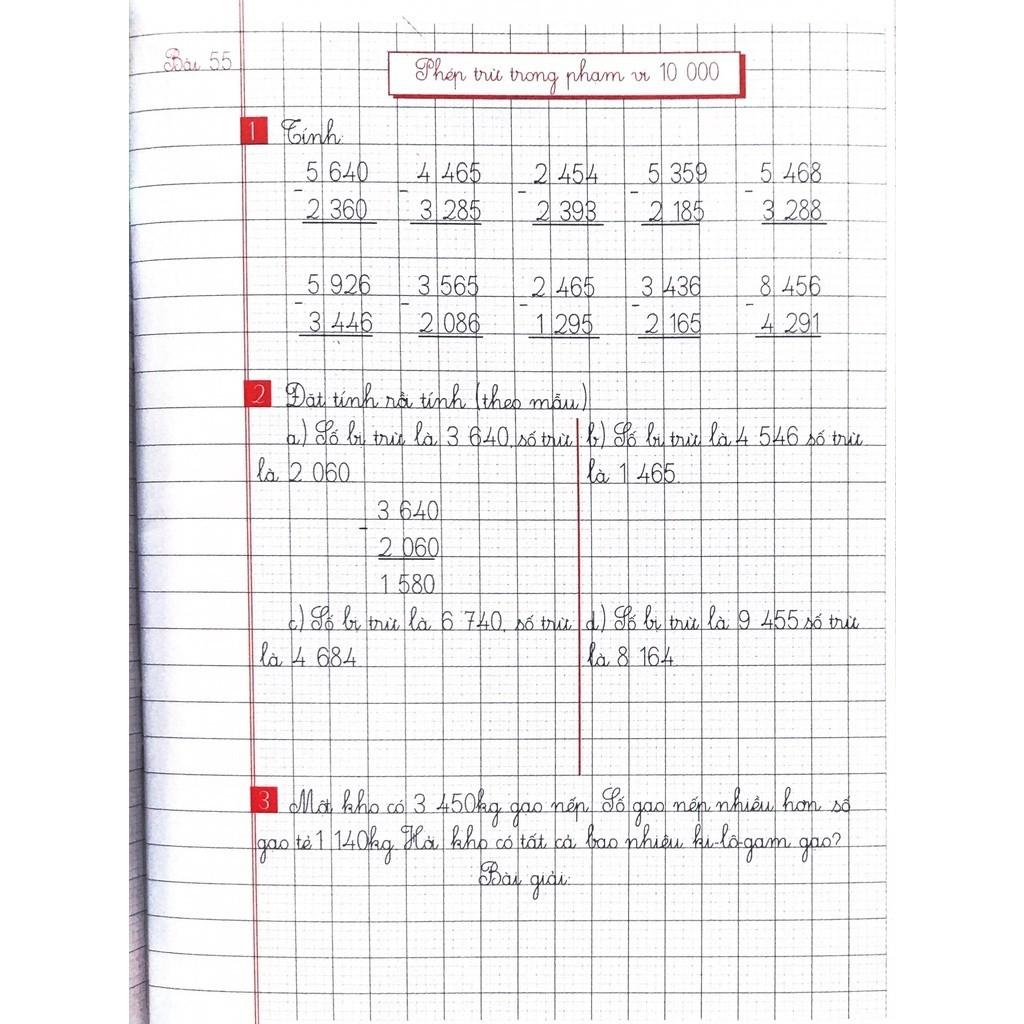 Bài 55
Phép trừ trong phạm vi 10 000
1 Tính:
5 640 4 465 2 454 5 359 5 468
- - - - -
2 360 3 285 2 393 2 185 3 288
5 926 3 565 2 465 3 436 8 456
- - - - -
3 446 2 086 1 295 2 165 4 291
2 Đặt tính rồi tính (theo mẫu)
a) Số bị trừ là 3 640, số trừ
là 2 060
3 640
-
2 060
1 580
b) Số bị trừ là 4 546 số trừ
là 1 465
c) Số bị trừ là 6 740, số trừ
là 4 684
d) Số bị trừ là 9 455 số trừ
là 8 164
3 Một kho có 3 450kg gạo nếp. Số gạo nếp nhiều hơn số
gạo tẻ 1 140kg. Hỏi kho có tất cả bao nhiêu ki-lô-gam gạo?
Bài giải: